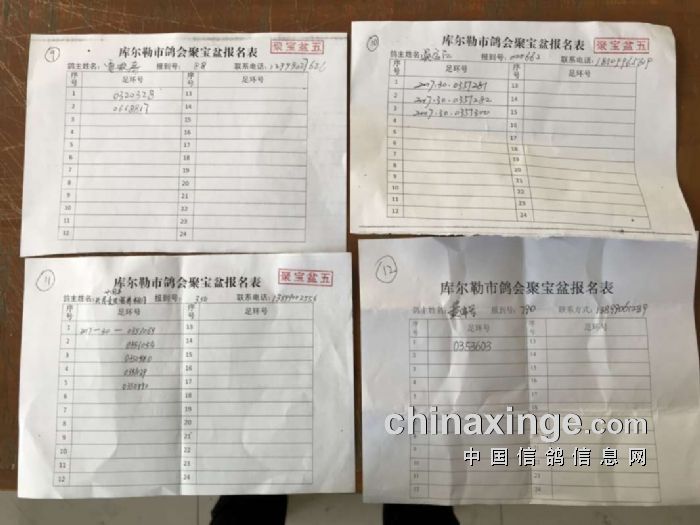 9
库尔勒市鸽会聚宝盆报名表
聚宝盆五
鸽主姓名: 报到号: 88 联系电话:
序号 足环号 序号 足环号
1 0320328 13
2 14
3 15
4 16
5 17
6 18
7 19
8 20
9 21
10 22
11 23
12 24
10
库尔勒市鸽会聚宝盆报名表
聚宝盆五
鸽主姓名: 报到号: 000662 联系电话:
序号 足环号 序号 足环号
1 2017.30.0357281 13
2 2017.30.0357282 14
3 2017.30.0357300 15
4 16
5 17
6 18
7 19
8 20
9 21
10 22
11 23
12 24
11
库尔勒市鸽会聚宝盆报名表
聚宝盆五
鸽主姓名: 报到号: 310 联系电话: 13899002556
序号 足环号 序号 足环号
1 13
2 14
3 15
4 16
5 17
6 18
7 19
8 20
9 21
10 22
11 23
12 24
12
库尔勒市鸽会聚宝盆报名表
鸽主姓名: 报到号: 790 联系方式:
序号 足环号 序号 足环号
1 0353603 13
2 14
3 15
4 16
5 17
6 18
7 19
8 20
9 21
10 22
11 23
12 24
chinaxinge.com
中国信鸽信息网